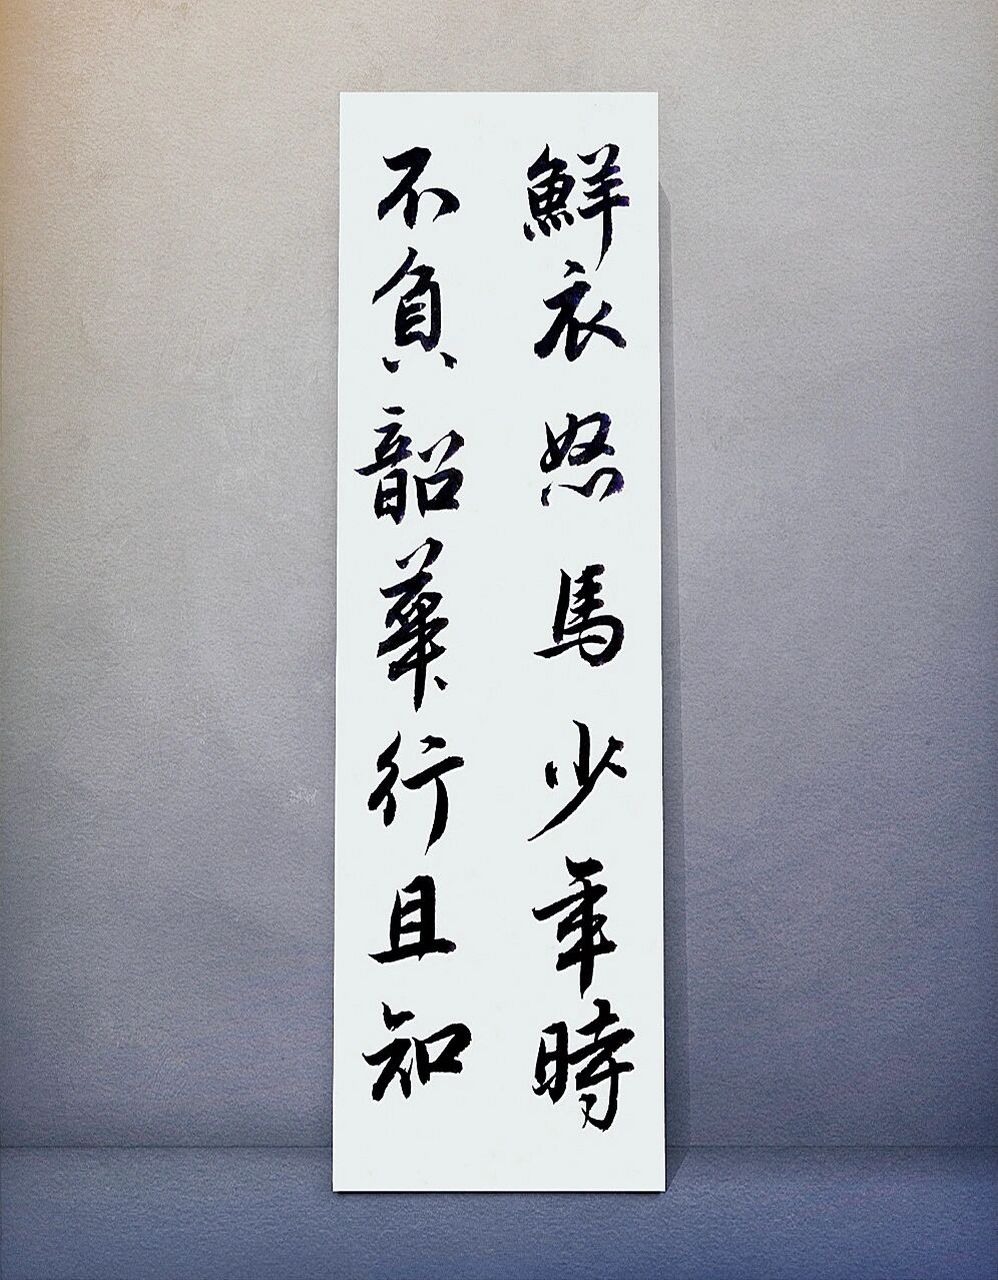 鮮衣怒馬少年時
不負韶華行且知